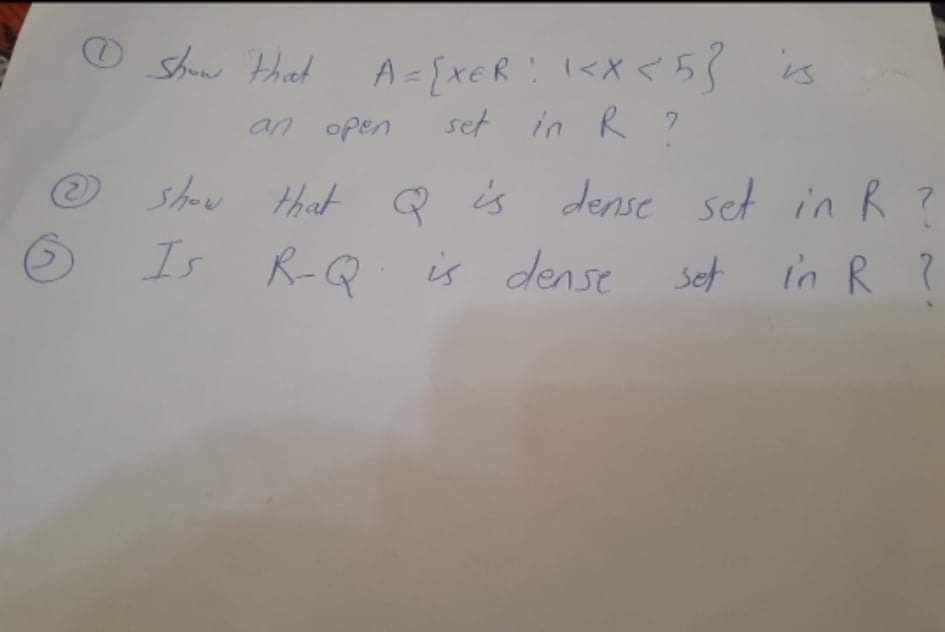 ① Show that A={x∈R: 1<x<5} is
an open set in R ?
② show that Q is dense set in R ?
③ Is R-Q is dense set in R ?